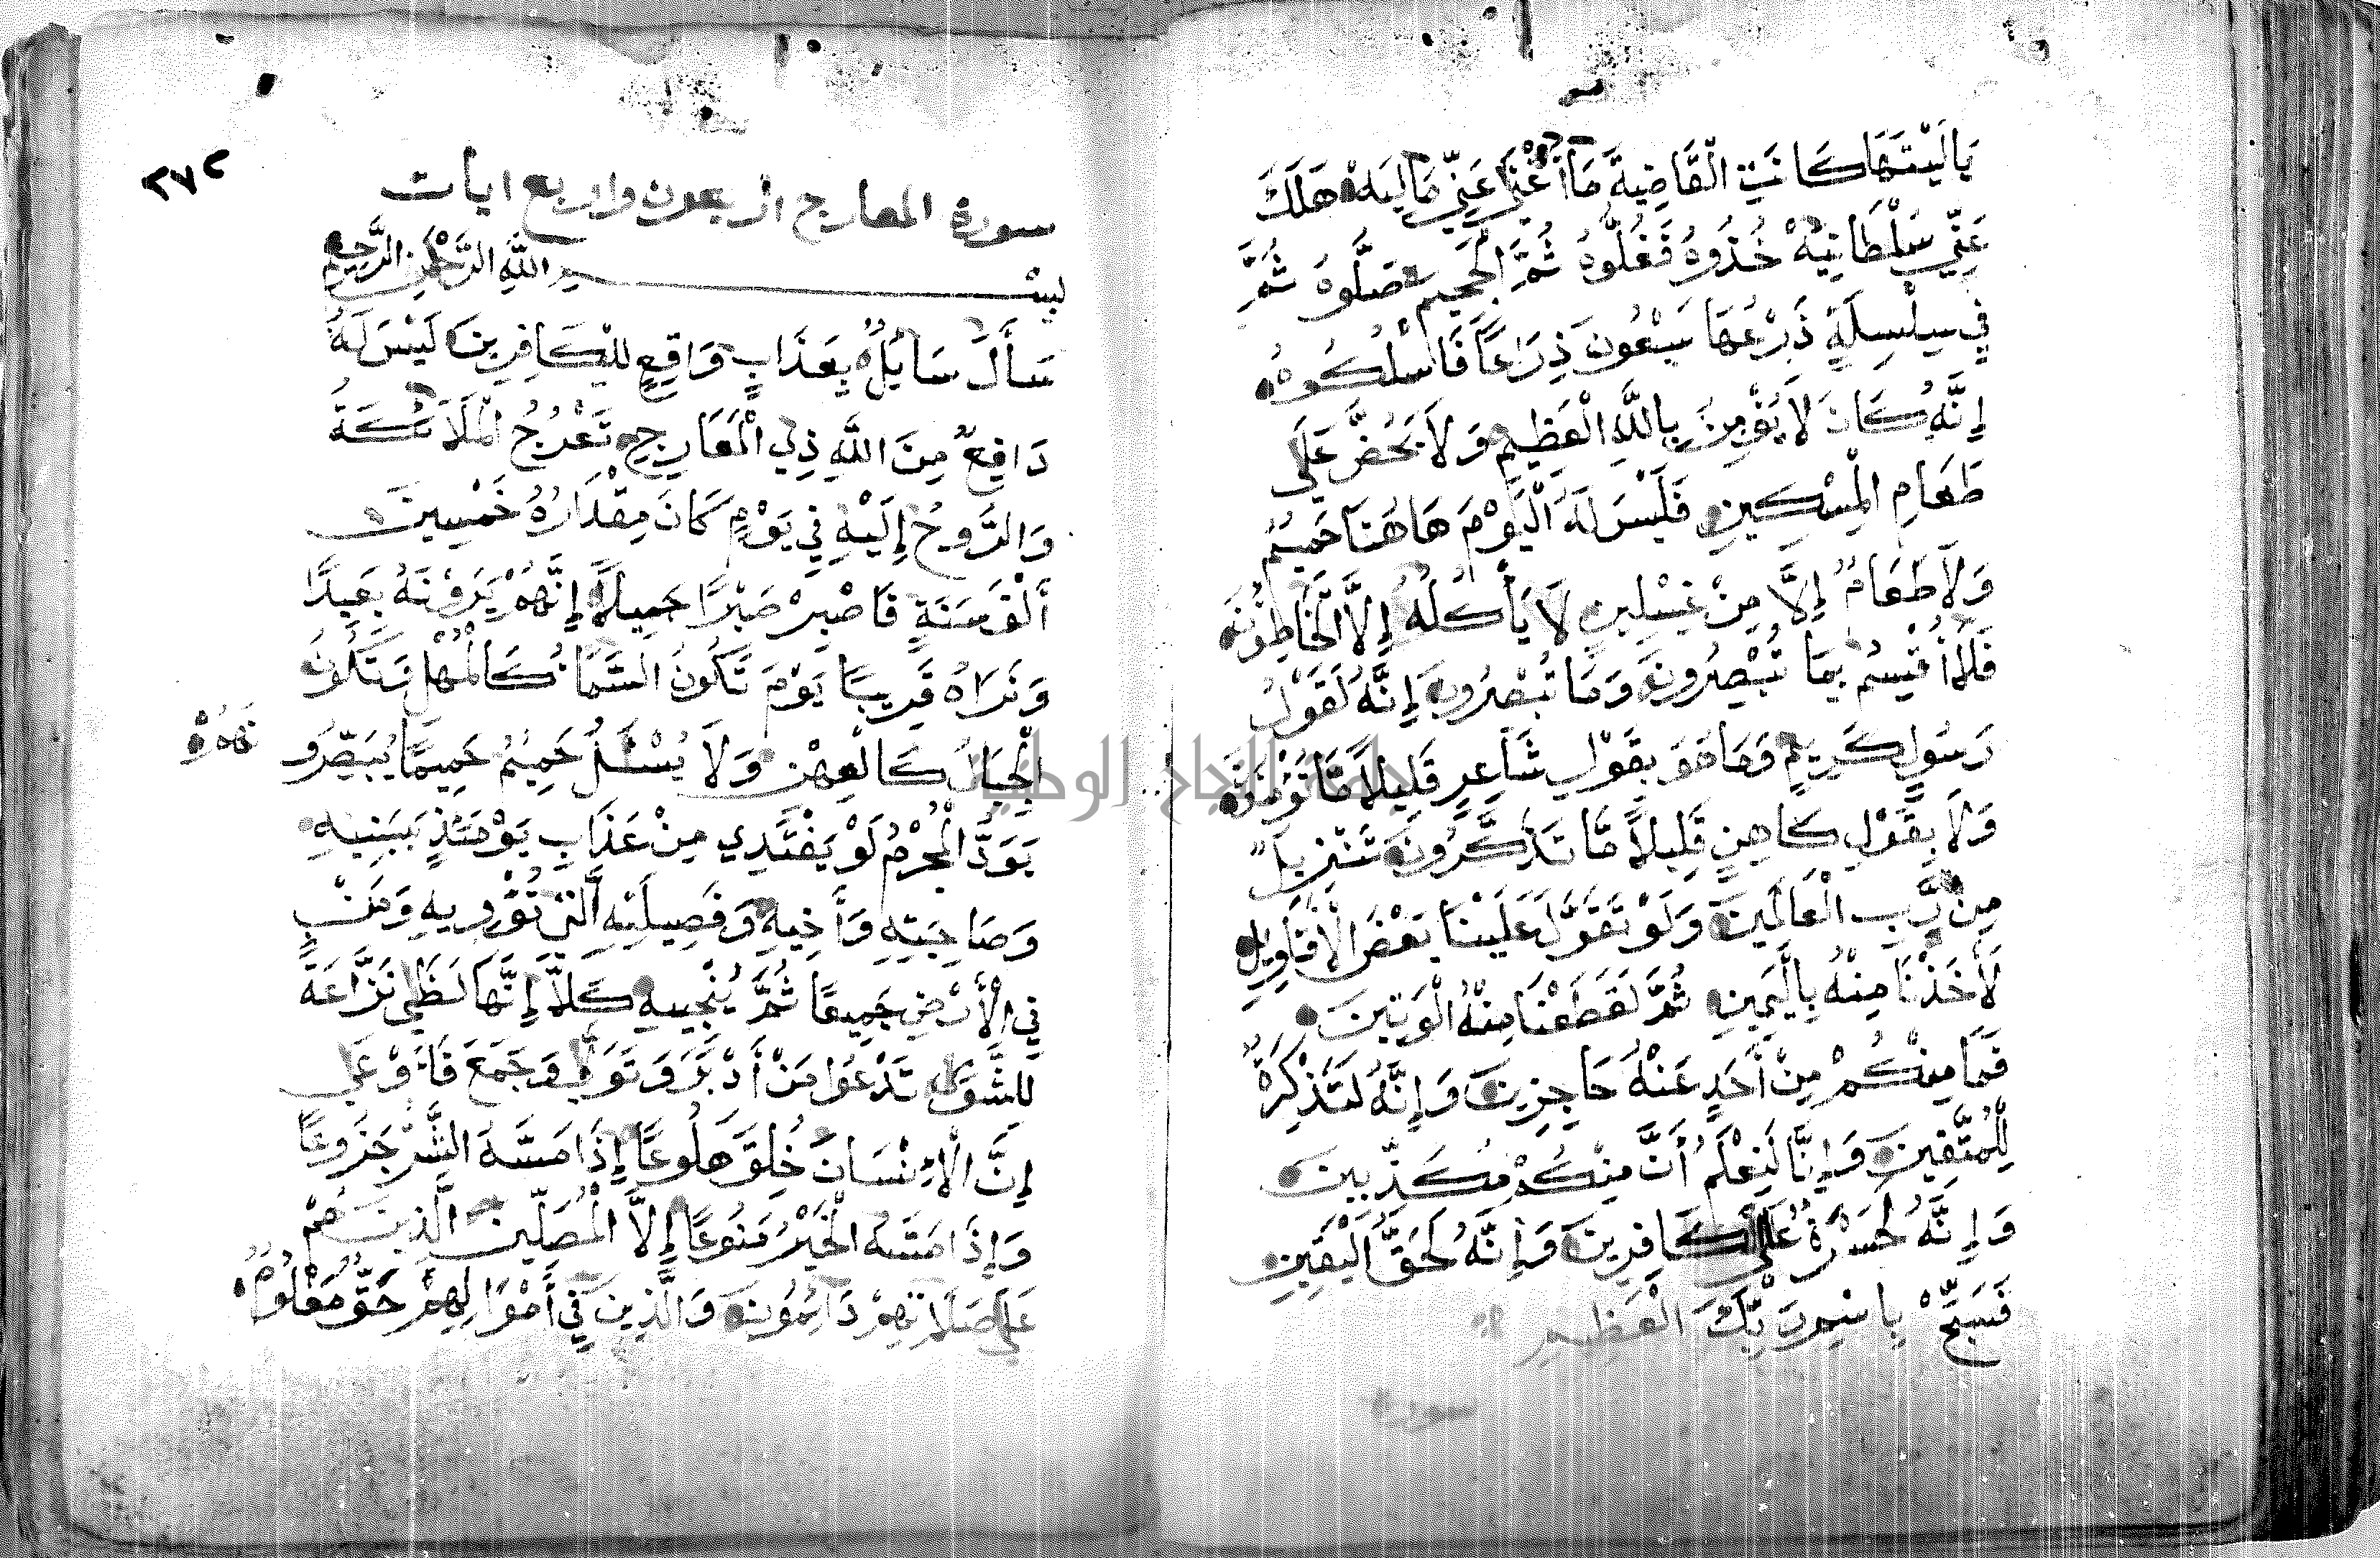 يَالَيْتَهَا كَانَتِ الْقَاضِيَةَ مَا أَغْنَى عَنِّي مَالِيَهْ هَلَكَ
عَنِّي سُلْطَانِيَهْ خُذُوهُ فَغُلُّوهُ ثُمَّ الْجَحِيمَ صَلُّوهُ ثُمَّ
فِي سِلْسِلَةٍ ذَرْعُهَا سَبْعُونَ ذِرَاعًا فَاسْلُكُوهُ
إِنَّهُ كَانَ لَا يُؤْمِنُ بِاللَّهِ الْعَظِيمِ وَلَا يَحُضُّ عَلَى
طَعَامِ الْمِسْكِينِ فَلَيْسَ لَهُ الْيَوْمَ هَاهُنَا حَمِيمٌ
وَلَا طَعَامٌ إِلَّا مِنْ غِسْلِينٍ لَا يَأْكُلُهُ إِلَّا الْخَاطِئُونَ
فَلَا أُقْسِمُ بِمَا تُبْصِرُونَ وَمَا تُبْصِرُونَ إِنَّهُ لَقَوْلُ
رَسُولٍ كَرِيمٍ وَمَا هُوَ بِقَوْلِ شَاعِرٍ قَلِيلًا مَّا تُؤْمِنُونَ
وَلَا بِقَوْلِ كَاهِنٍ قَلِيلًا مَّا تَذَكَّرُونَ تَنْزِيلٌ
مِن رَّبِّ الْعَالَمِينَ وَلَوْ تَقَوَّلَ عَلَيْنَا بَعْضَ الْأَقَاوِيلِ
لَأَخَذْنَا مِنْهُ بِالْيَمِينِ ثُمَّ لَقَطَعْنَا مِنْهُ الْوَتِينَ
فَمَا مِنْكُمْ مِنْ أَحَدٍ عَنْهُ حَاجِزِينَ وَإِنَّهُ لَتَذْكِرَةٌ
لِلْمُتَّقِينَ وَإِنَّا لَنَعْلَمُ أَنَّ مِنْكُمْ مُكَذِّبِينَ
وَإِنَّهُ لَحَسْرَةٌ عَلَى الْكَافِرِينَ وَإِنَّهُ لَحَقُّ الْيَقِينِ
فَسَبِّحْ بِاسْمِ رَبِّكَ الْعَظِيمِ
سورة
٢٧٢
سورة المعارج اربعون واربع ايات
بِسْمِ اللَّهِ الرَّحْمَنِ الرَّحِيمِ
سَأَلَ سَائِلٌ بِعَذَابٍ وَاقِعٍ لِلْكَافِرِينَ لَيْسَ لَهُ
دَافِعٌ مِنَ اللَّهِ ذِي الْمَعَارِجِ تَعْرُجُ الْمَلَائِكَةُ
وَالرُّوحُ إِلَيْهِ فِي يَوْمٍ كَانَ مِقْدَارُهُ خَمْسِينَ
أَلْفَ سَنَةٍ فَاصْبِرْ صَبْرًا جَمِيلًا إِنَّهُمْ يَرَوْنَهُ بَعِيدًا
وَنَرَاهُ قَرِيبًا يَوْمَ تَكُونُ السَّمَاءُ كَالْمُهْلِ وَتَكُونُ
الْجِبَالُ كَالْعِهْنِ وَلَا يُسْئَلُ حَمِيمٌ حَمِيمًا يُبَصَّرُو
نَهُمْ
يَوَدُّ الْمُجْرِمُ لَوْ يَفْتَدِي مِنْ عَذَابِ يَوْمَئِذٍ بِبَنِيهِ
وَصَاحِبَتِهِ وَأَخِيهِ وَفَصِيلَتِهِ الَّتِي تُؤْوِيهِ وَمَنْ
فِي الْأَرْضِ جَمِيعًا ثُمَّ يُنْجِيهِ كَلَّا إِنَّهَا لَظَى نَزَّاعَةً
لِلشَّوَى تَدْعُوا مَنْ أَدْبَرَ وَتَوَلَّى وَجَمَعَ فَأَوْعَى
إِنَّ الْإِنْسَانَ خُلِقَ هَلُوعًا إِذَا مَسَّهُ الشَّرُّ جَزُوعًا
وَإِذَا مَسَّهُ الْخَيْرُ مَنُوعًا إِلَّا الْمُصَلِّينَ الَّذِينَ هُمْ
عَلَى صَلَاتِهِمْ دَائِمُونَ وَالَّذِينَ فِي أَمْوَالِهِمْ حَقٌّ مَعْلُومٌ
جامعة النجاح الوطنية